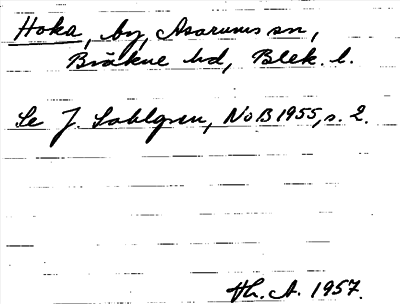 Hoka, by, Asarums sn,
Bräkne hd, Blek. l.
Se J. Sahlgren, NoB 1955, s. 2.
Th. A. 1957.